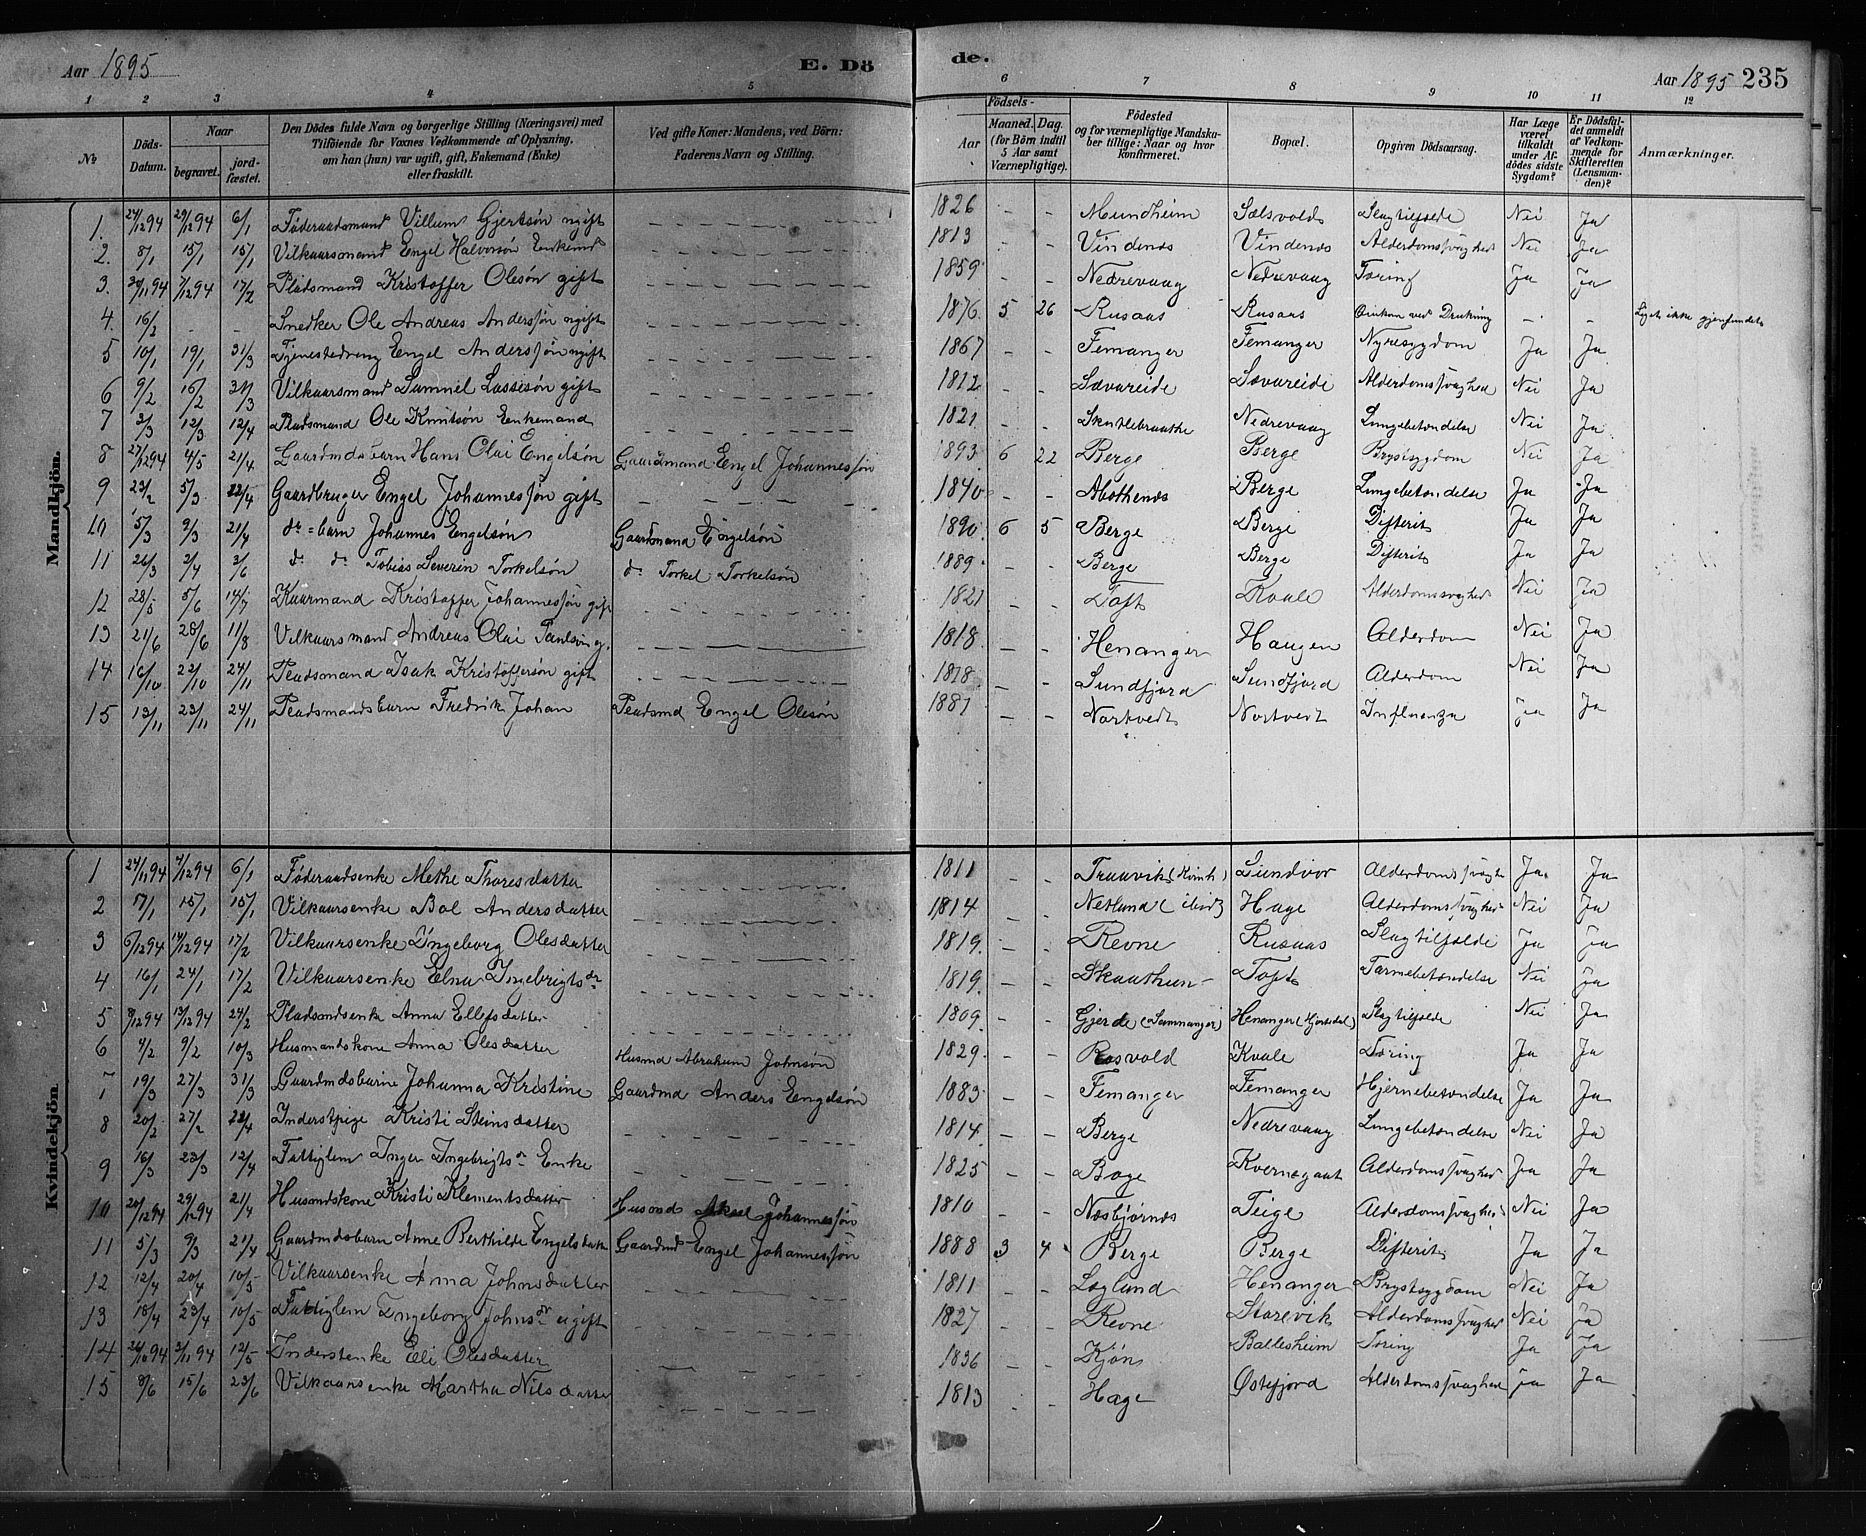 Aar 1895 E. Dö
de. Aar 1895 235
1 2 3 4 5 6 7 8 9 10 11 12
№ Döds-Datum. Naar begravet. jord-fæstet. Den Dödes fulde Navn og borgerlige Stilling (Næringsvei) med Tilföiende for Voxnes Vedkommende af Oplysning, om han (hun) var ugift, gift, Enkemand (Enke) eller fraskilt. Ved gifte Koner: Mandens, ved Börn: Faderens Navn og Stilling. Födsels- Aar Maaned. Dag. (for Börn indtil 5 Aar samt Værnepligtige). Födested og for værnepligtige Mandska-ber tillige: Naar og hvor konfirmeret. Bopæl. Opgiven Dödsaarsag. Har Læge været tilkaldt under Af-dödes sidste Sygdom? Er Dödsfal-det anmeldt af Vedkom-mende for Skifteretten (Lensman-den)? Anmærkninger.
Mandkjön.
1. 24/12 94 29/12 94 6/1 Föderaadsmand Villum Gjertsön ugift 1826 - - Mundheim Sælsvold Slagtilfælde Nei Ja
2. 8/1 15/1 15/1 Vilkaarsmand Engel Halvorsön Enkemd 1813 - - Vindenes Vindenes Alderdomssvaghed Nei Ja
3. 30/11 94 7/12 94 17/2 Pladsmand Kristoffer Olesön gift 1859 - - Nedrevaag Nedrevaag Tæring Ja Ja
4. 16/2 - - Snedker Ole Andreas Anderssön ugift 1876 5 26 Rusaas Rusaas ved Drukning - - Liget ikke gjenfundet
5 10/1 19/1 31/3 Tjenestedreng Engel Anderssön ugift 1867 - - Femanger Femanger Nyresygdom Ja Ja
6 9/2 16/2 31/3 Vilkaarsmand Samuel Lassesön gift 1812 - - Sævareide Sævareide Alderdomssvaghed Nei Ja
7 3/3 12/3 12/4 Pladsmand Ole Knutsön Enkemand 1821 - - Nedrevaag Lungebetændelse Nei Ja
8 27/12 94 4/5 21/4 Gaardmdsbarn Hans Olai Engelsön Gaardmand Engel Johannessön 1893 6 22 Berge Berge Brystsygdom Nei Ja
9 23/2 5/3 22/4 Gaardbruger Engel Johannessön gift 1840 - - Berge Lungebetændelse Ja Ja
10 5/3 9/3 21/4 do barn Johannes Engelsön Gaardmand Engelsön 1890 6 5 Berge Berge Difterit Ja Ja
11 26/3 2/4 3/6 do do Tobias Severin Torkelsön do Torkel Torkelsön 1889 - - Berge Berge Difterit Ja Ja
12 28/5 5/6 14/7 Kaarmand Kristoffer Johannessön gift 1821 - - Toft Kvale Alderdomssvaghed Nei Ja
13 21/6 28/6 11/8 Vilkaarsmand Andreas Olai Paulsön g. 1818 - - Henanger Haugen Alderdom Nei Ja
14 16/10 22/10 24/11 Pladsmand Isak Kristoffersön gift 1818 - - Sundfjord Sundfjord Alderdom Nei Ja
15 13/11 23/11 24/11 Pladsmandsbarn Fredrik Johan Pladsmd Engel Olesön 1887 - - Nortvedt Nortvedt Influenza Ja Ja
Kvindekjön.
1 24/11 94 4/12 94 6/1 Föderaadsenke Methe Thoresdatter 1811 - - Traavik Lundvor Alderdomssvaghed Ja Ja
2 7/1 15/1 15/1 Vilkaarsenke Bol Andersdatter 1814 - - Netland (ibid) Hage Alderdomssvaghed Nei Ja
3 6/12 94 14/12 94 17/2 Vilkaarsenke Ingeborg Olesdatter 1819 - - Revne Rusaas Slagtilfælde Ja Ja
4 16/1 24/1 17/2 Vilkaarsenke Elna Ingebrigtsdr 1819 - - Skaathun Toft Tarmebetændelse Nei Ja
5 8/12 94 13/12 94 24/2 Pladsandsenke Anna Ellefsdatter 1809 - - Gjerde (Samnanger) Henanger (Hjortedal) Slagtilfælde Nei Ja
6 4/2 9/2 10/3 Husmandskone Anna Olesdatter Husmd Abraham Johnsön 1829 - - Rosvold Kvale Tæring Ja Ja
7 19/3 27/3 31/3 Gaardmdsbarn Johanna Kristine Gaardmd Anders Engelsön 1883 - - Femanger Femanger Hjernebetændelse Ja Ja
8 20/2 27/2 22/4 Inderstpige Kristi Steinsdatter 1814 - - Berge Nedrevaag Lungebetændelse Nei Ja
9 16/3 23/3 12/4 Fattiglem Inger Ingebrigtsdr Enke 1825 - - Boge Kvernegaut Alderdomssvaghed Ja Ja
10 20/12 94 29/12 94 21/4 Husandskone Kristi Klementsdatter Husand Aksel Johannessön 1810 - - Næsbjørnes Teige Alderdomssvaghed Nei Ja
11 5/3 9/3 21/4 Gaardmdsbarn Anne Berthilde Engelsdatt Gaardmd Engel Johannessön 1888 3 4 Berge Berge Difterit Ja Ja
12 12/4 20/4 10/5 Vilkaarsenke Anna Johnsdatter 1811 - - Løglund Henanger Brystsygdom Nei Ja
13 18/4 23/4 10/5 Fattiglem Ingeborg Johnsdr ugift 1827 - - Revne Storevik Alderdomssvaghed Nei Ja
14 26/10 94 2/11 94 12/5 Inderstenke Eli Olesdatter 1836 - - Kjøn Ballesheim Tæring Ja Ja
15 8/6 15/6 23/6 Vilkaarsenke Martha Nilsdatter 1813 - - Hage Østefjord Alderdomssvaghed Ja Ja